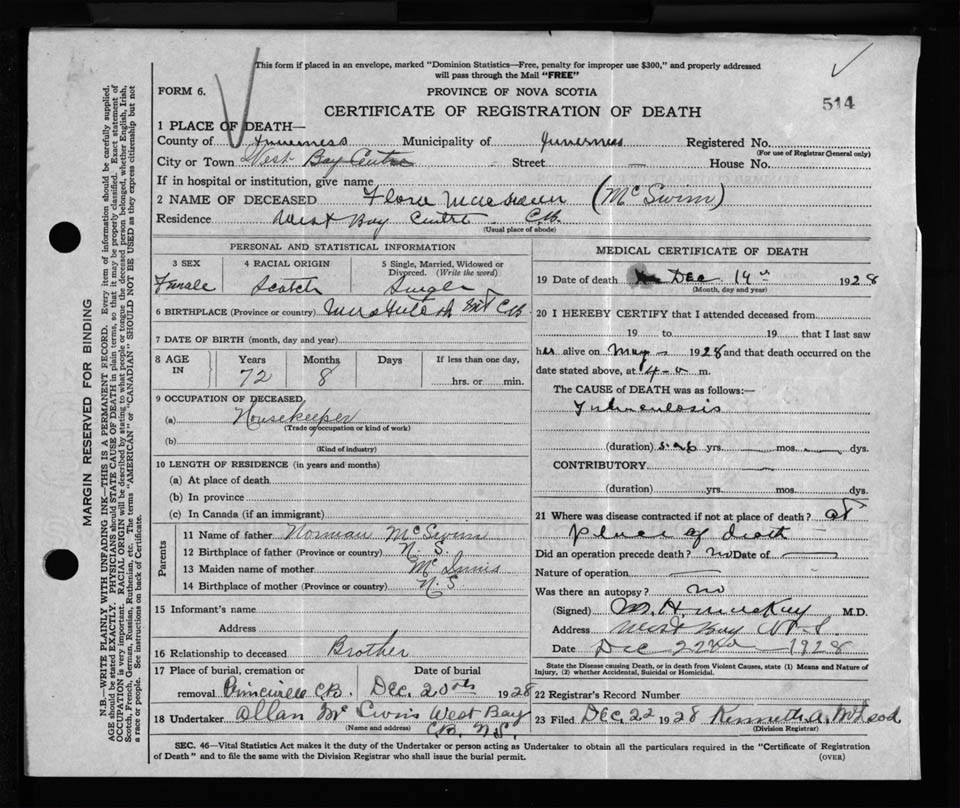 This form if placed in an envelope, marked "Dominion Statistics—Free, penalty for improper use $300," and properly addressed
will pass through the Mail "FREE"
FORM 6.
PROVINCE OF NOVA SCOTIA
514
CERTIFICATE OF REGISTRATION OF DEATH
1 PLACE OF DEATH—
County of Inverness Municipality of Inverness Registered No.
(For use of Registrar General only)
City or Town West Bay Centre Street House No.
If in hospital or institution, give name
2 NAME OF DECEASED Flora (McSwim)
Residence West Bay Centre C.B.
(Usual place of abode)
PERSONAL AND STATISTICAL INFORMATION
3 SEX 4 RACIAL ORIGIN 5 Single, Married, Widowed or
Divorced. (Write the word)
Female Scotch Single
6 BIRTHPLACE (Province or country) C.B.
7 DATE OF BIRTH (month, day and year)
8 AGE Years Months Days If less than one day,
IN 72 8 hrs. or min.
9 OCCUPATION OF DECEASED
(a) Housekeeper
(Trade or occupation or kind of work)
(b)
(Kind of industry)
10 LENGTH OF RESIDENCE (in years and months)
(a) At place of death
(b) In province
(c) In Canada (if an immigrant)
Parents
11 Name of father Norman McSwim
12 Birthplace of father (Province or country) N.S.
13 Maiden name of mother McInnis
14 Birthplace of mother (Province or country) N.S.
15 Informant's name
Address
16 Relationship to deceased Brother
17 Place of burial, cremation or Date of burial
removal Princeville C.B. Dec. 20th 1928
18 Undertaker Allan West Bay
(Name and address) C.B. N.S.
MEDICAL CERTIFICATE OF DEATH
19 Date of death Dec. 19th 1928
(Month, day and year)
20 I HEREBY CERTIFY that I attended deceased from
19 to 19 that I last saw
her alive on May 1928 and that death occurred on the
date stated above, at m.
The CAUSE OF DEATH was as follows:—
Tuberculosis
(duration) yrs. mos. dys.
CONTRIBUTORY
(duration) yrs. mos. dys.
21 Where was disease contracted if not at place of death? at
place of death
Did an operation precede death? no Date of
Nature of operation
Was there an autopsy? no
(Signed) M.H. MacKay M.D.
Address West Bay N.S
Date Dec 22nd 1928
State the Disease causing Death, or in death from Violent Causes, state (1) Means and Nature of
Injury, (2) whether Accidental, Suicidal or Homicidal.
22 Registrar's Record Number
23 Filed Dec. 22 1928 Kenneth A. McLeod
(Division Registrar)
SEC. 46—Vital Statistics Act makes it the duty of the Undertaker or person acting as Undertaker to obtain all the particulars required in the "Certificate of Registration
of Death" and to file the same with the Division Registrar who shall issue the burial permit.
(OVER)
MARGIN RESERVED FOR BINDING
N.B.—WRITE PLAINLY WITH UNFADING INK—THIS IS A PERMANENT RECORD. Every item of information should be carefully supplied.
AGE should be stated EXACTLY. PHYSICIANS should STATE CAUSE OF DEATH in plain terms, so that it may be properly classified. Exact statement of
OCCUPATION is very important. RACIAL ORIGIN will be described by stating to what people or tongue the deceased person belonged, whether English, Irish,
Scotch, French, German, Russian, Ruthenian, etc. The terms "AMERICAN" or "CANADIAN" SHOULD NOT BE USED as they express citizenship but not
a race or people. See instructions on back of Certificate.